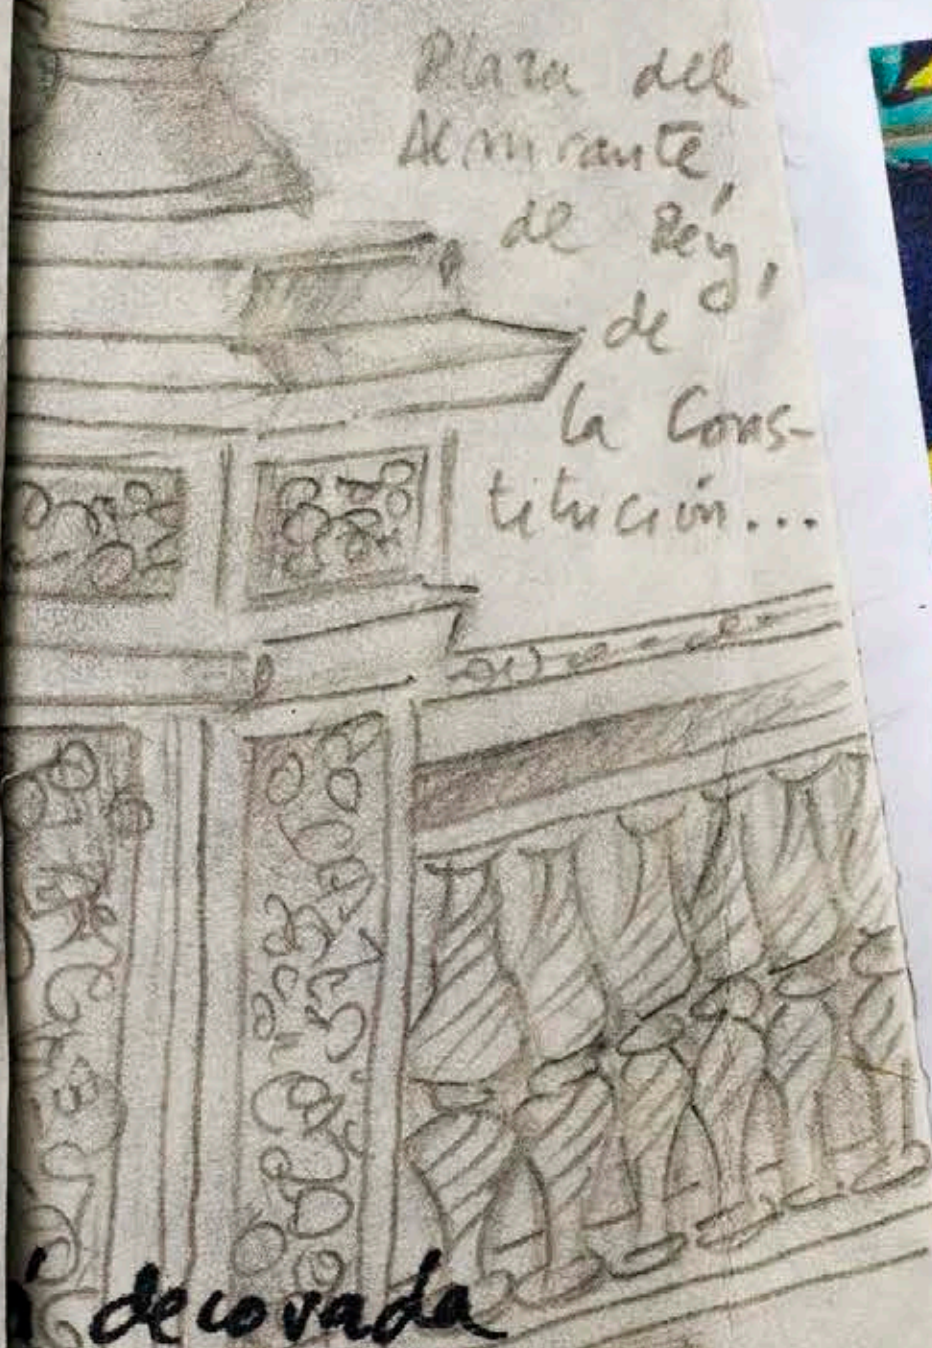 Plaza del
Almirante,
de Rey,
de
la Cons-
titución...
decorada